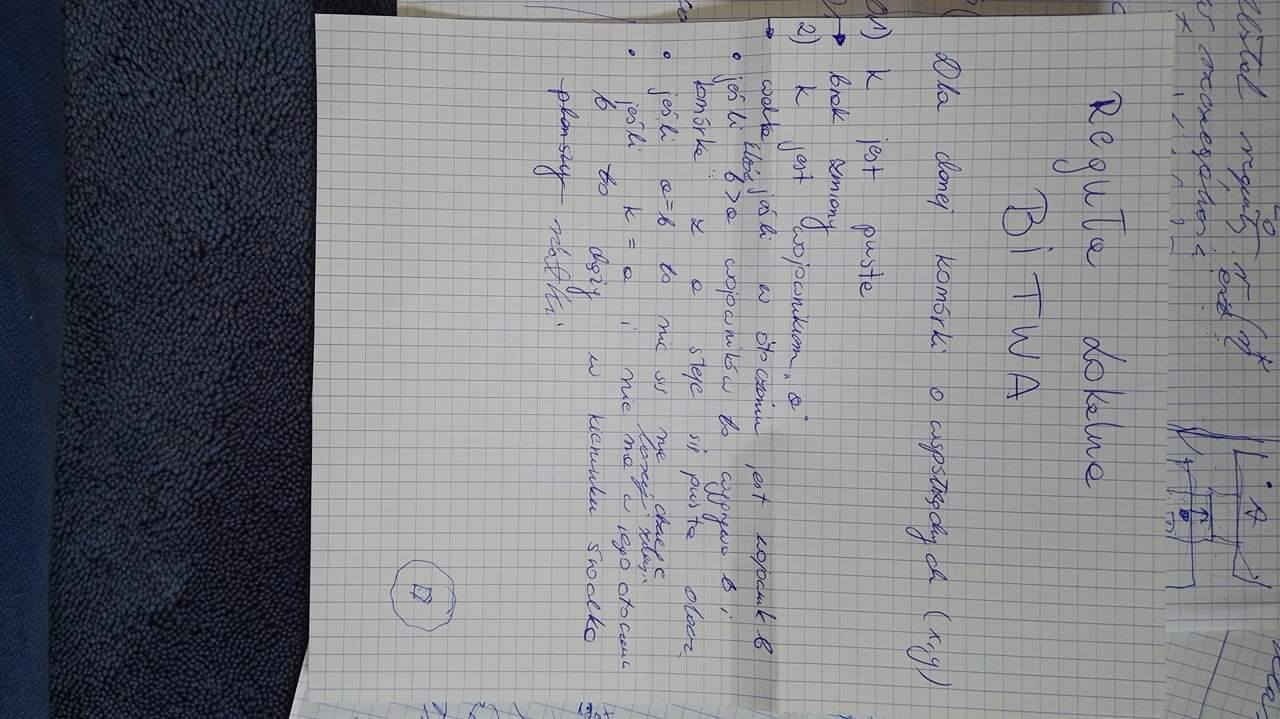 Ustal reguły r
w szczególności
A
Reguła Lokalna
BITWA
Dla danej komórki o współrzędnych (x,y)
1) k jest puste
→ brak zmiany
2) k jest wojownikiem "a"
→ walka jeśli w otoczeniu jest wojownik b
• jeśli ilość b>a wojowników to wygrywa b i
komórka z a staje się pusta
• jeśli a=b to nic się nie dzieje
• jeśli k = a i nie ma w jego otoczeniu
b to dąży w kierunku środka
planszy